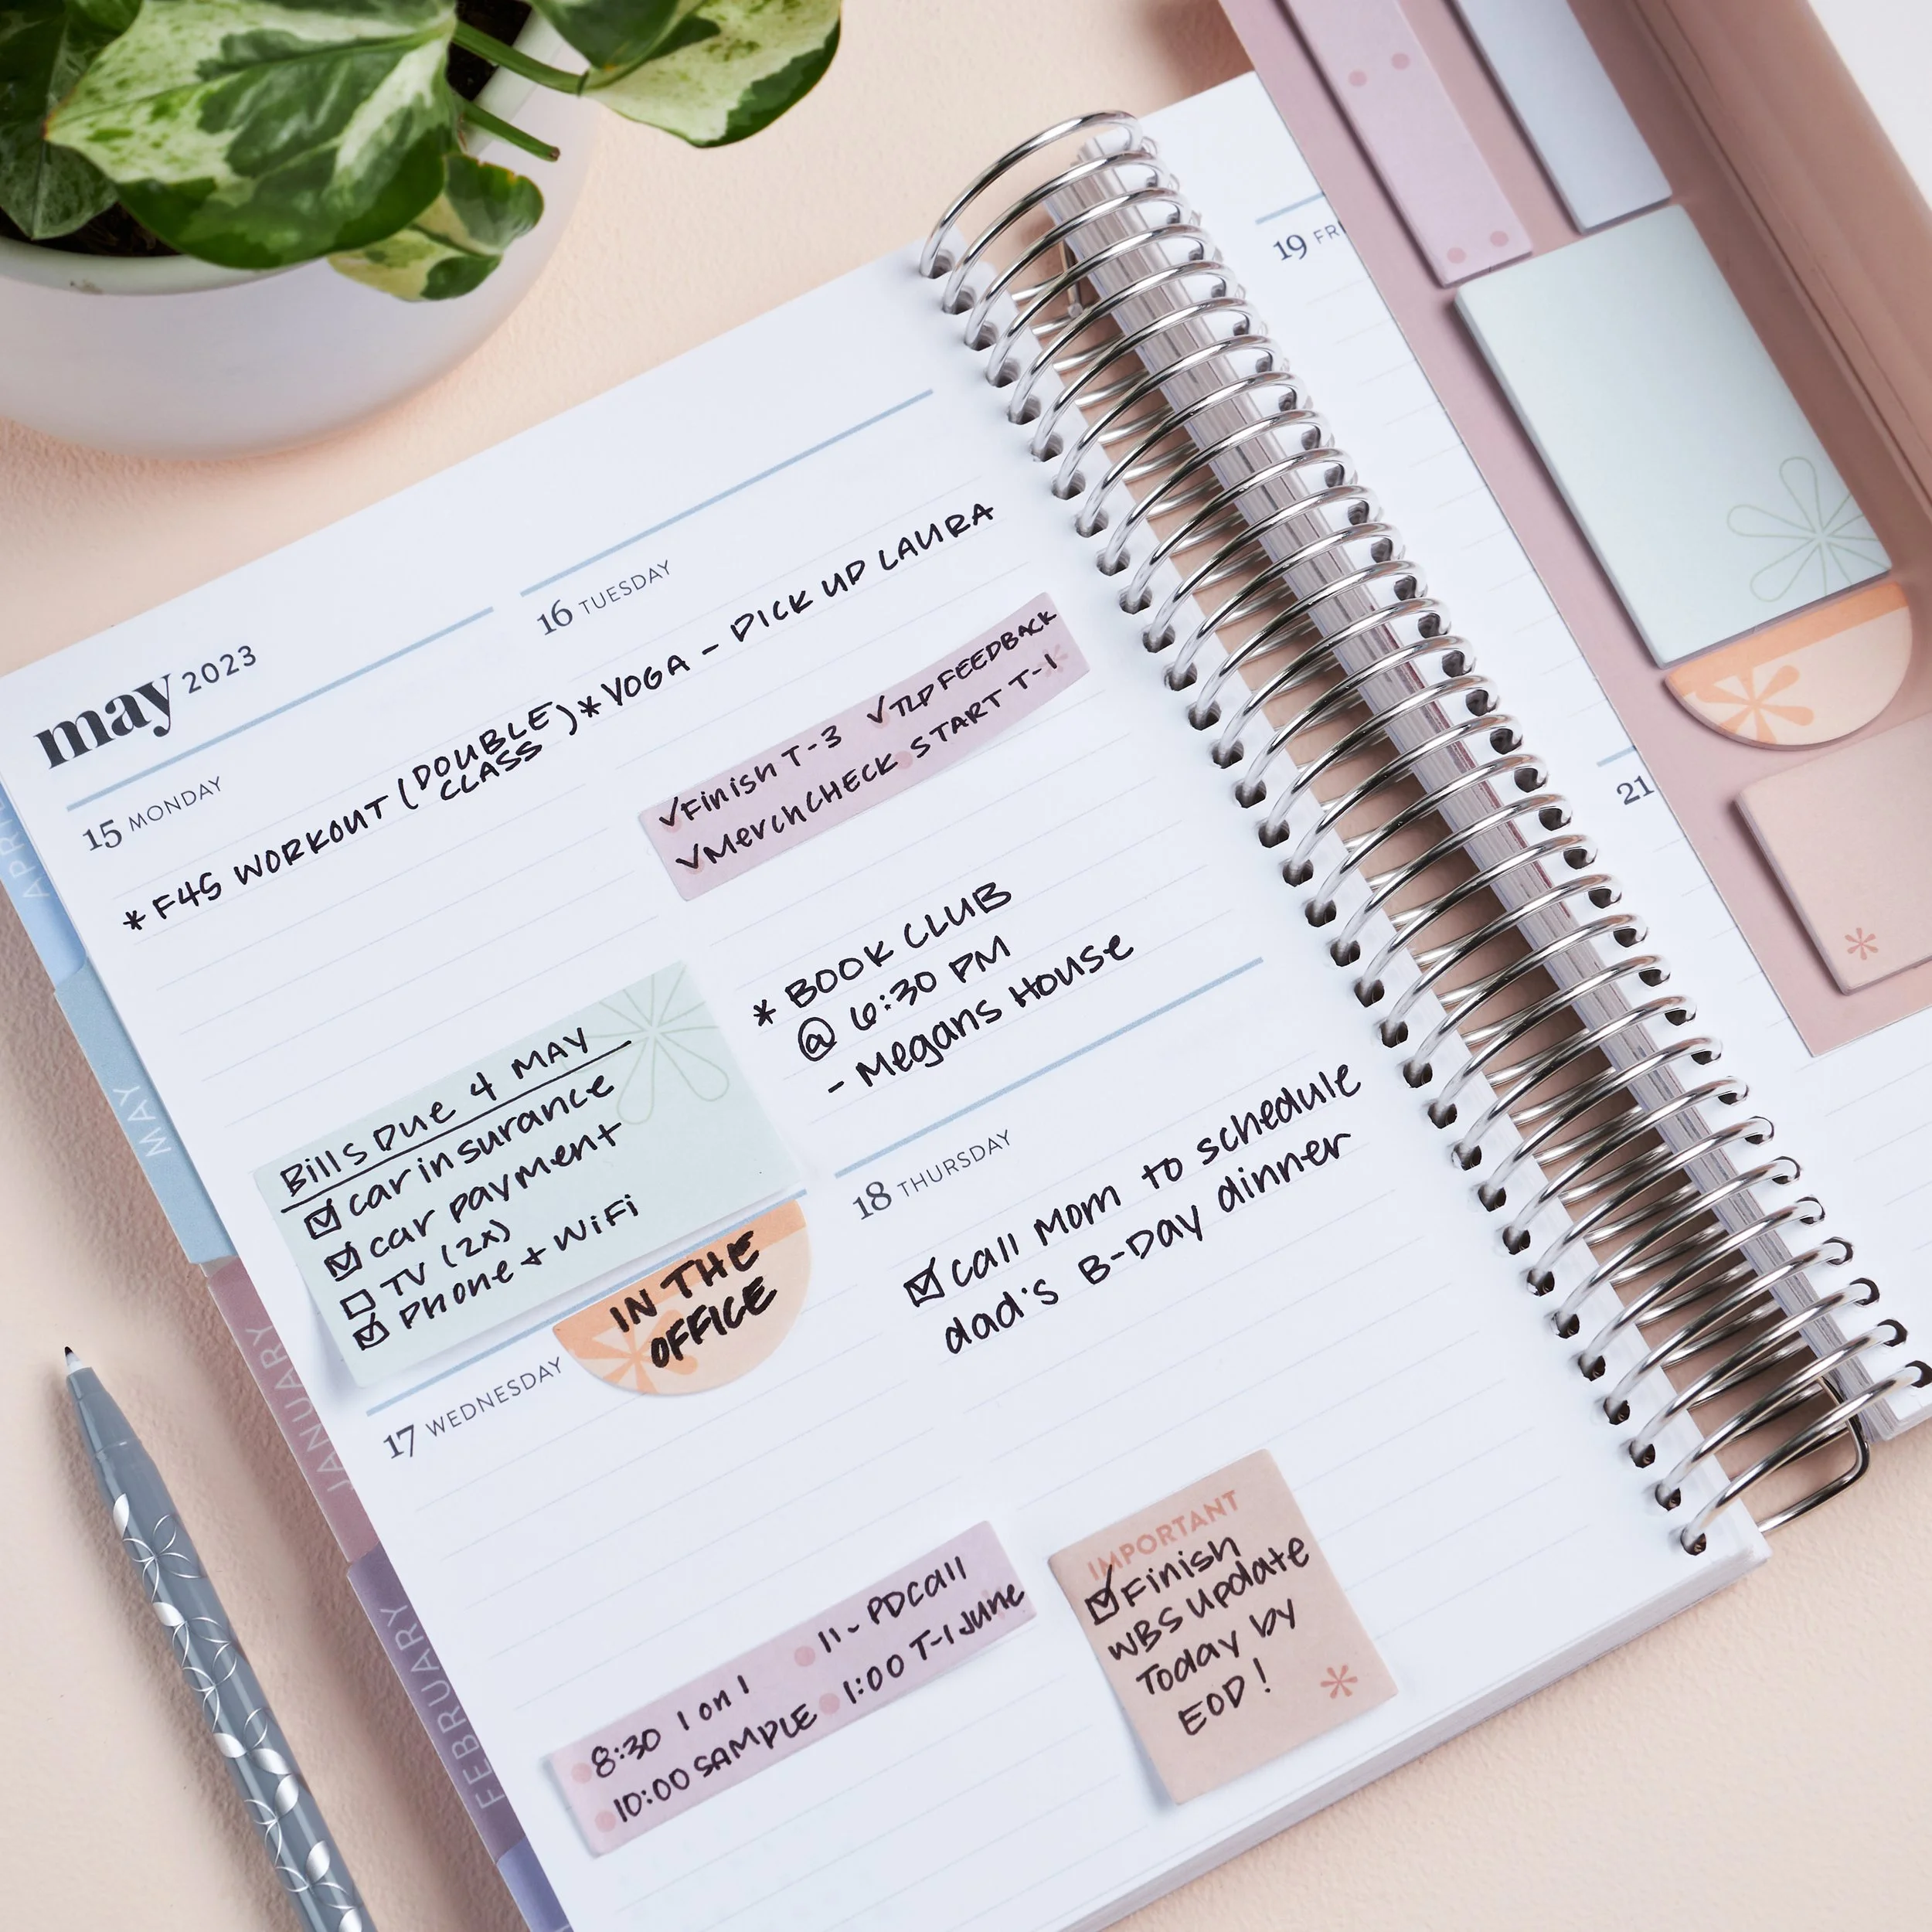 may 2023
15 MONDAY
* F45 WORKOUT (DOUBLE CLASS)
Bills Due 4 MAY
☑ car insurance
☑ car payment
☐ TV (2x)
☑ Phone + WiFi
16 TUESDAY
* YOGA - PICK UP LAURA
✓Finish T-3 ✓TLP FEEDBACK
✓MerchCHECK START T-1
* BOOK CLUB
@ 6:30 PM
- Megans House
17 WEDNESDAY
IN THE
OFFICE
8:30 1 on 1 11- PDCall
10:00 SAMPLE 1:00 T-1 June
18 THURSDAY
☑ call Mom to schedule
dad's B-Day dinner
IMPORTANT
☑ Finish
WBS Update
Today by
EOD!
19 FRI
21
APRIL
MAY
JANUARY
FEBRUARY